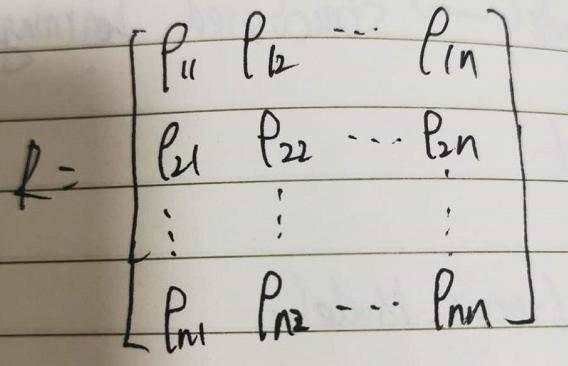 ρ₁₁ ρ₁₂ ⋯ ρ₁n
R = ρ₂₁ ρ₂₂ ⋯ ρ₂n
⋮ ⋮ ⋮
ρn₁ ρn₂ ⋯ ρnn